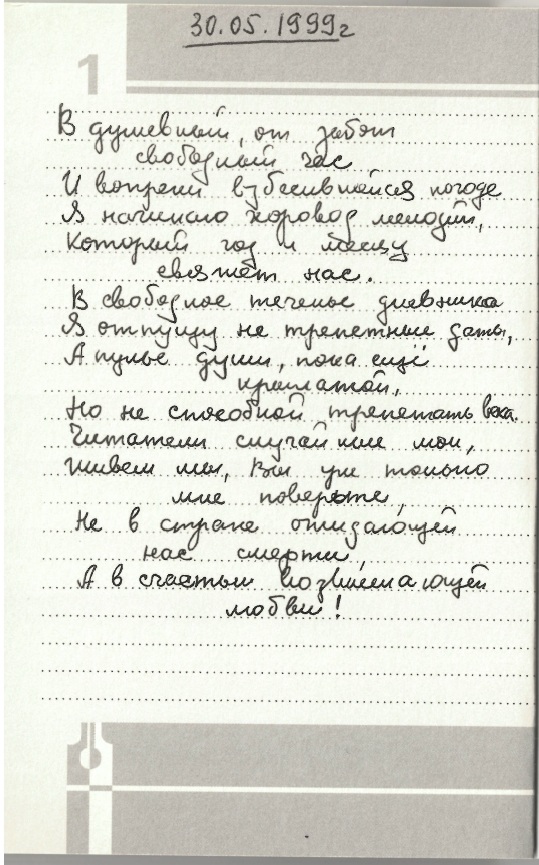 30.05.1999г
1
В душевный, от забот
свободный час
И вопреки взбесившейся погоде
Я начинаю хоровод мелодий,
Который год и месяц
свяжет нас.
В свободное теченье дневника
Я отпущу не трепетные даты,
А пулье души, пока ещё
крылатой,
Но не способной трепетать века.
Читатели случайные мои,
Живем мы, Вы уж только
мне поверьте,
Не в страхе ожидающей
нас смерти,
А в счастьи возвышающей
любви!